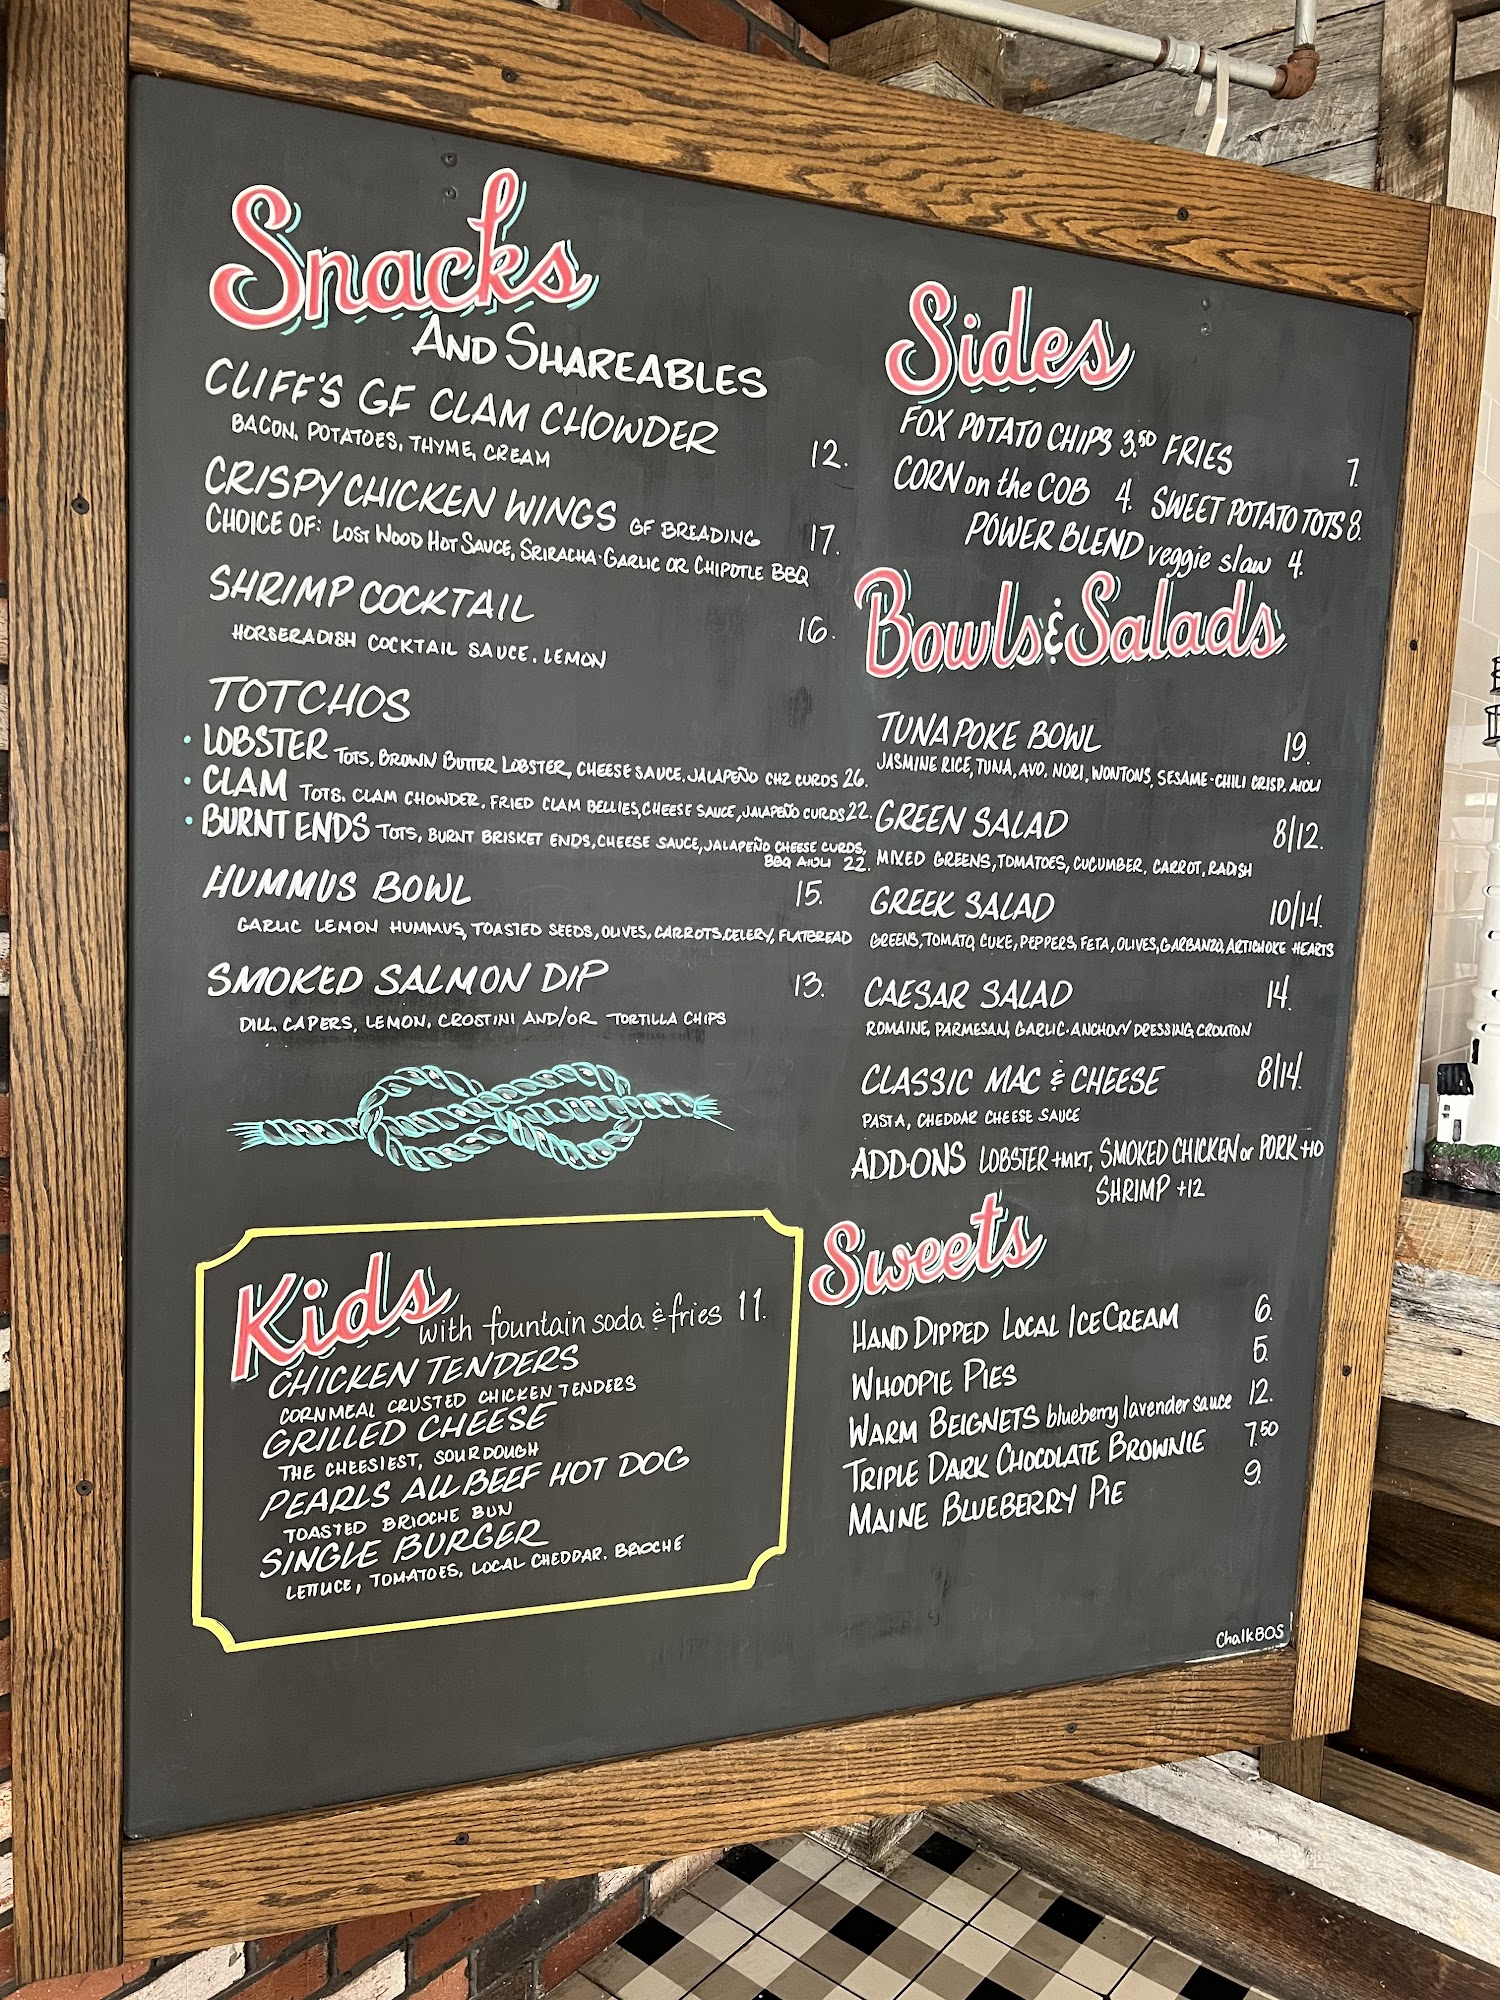 Snacks
AND SHAREABLES
CLIFF'S GF CLAM CHOWDER 12.
BACON, POTATOES, THYME, CREAM
CRISPY CHICKEN WINGS GF BREADING 17.
CHOICE OF: LOST WOOD HOT SAUCE, SRIRACHA-GARLIC OR CHIPOTLE BBQ
SHRIMP COCKTAIL 16.
HORSERADISH COCKTAIL SAUCE, LEMON
TOTCHOS
• LOBSTER TOTS, BROWN BUTTER LOBSTER, CHEESE SAUCE, JALAPEÑO CHZ CURDS 26.
• CLAM TOTS, CLAM CHOWDER, FRIED CLAM BELLIES, CHEESE SAUCE, JALAPEÑO CURDS 22.
• BURNT ENDS TOTS, BURNT BRISKET ENDS, CHEESE SAUCE, JALAPEÑO CHEESE CURDS,
BBQ AIOLI 22.
HUMMUS BOWL 15.
GARLIC LEMON HUMMUS, TOASTED SEEDS, OLIVES, CARROTS, CELERY, FLATBREAD
SMOKED SALMON DIP 13.
DILL, CAPERS, LEMON, CROSTINI AND/OR TORTILLA CHIPS
Kids
with fountain soda & fries 11.
CHICKEN TENDERS
CORNMEAL CRUSTED CHICKEN TENDERS
GRILLED CHEESE
THE CHEESIEST, SOURDOUGH
PEARLS ALL BEEF HOT DOG
TOASTED BRIOCHE BUN
SINGLE BURGER
LETTUCE, TOMATOES, LOCAL CHEDDAR, BRIOCHE
Sides
FOX POTATO CHIPS 3.50 FRIES 7.
CORN on the COB 4. SWEET POTATO TOTS 8.
POWER BLEND veggie slaw 4.
Bowls & Salads
TUNA POKE BOWL 19.
JASMINE RICE, TUNA, AVO, NORI, WONTONS, SESAME-CHILI CRISP, AIOLI
GREEN SALAD 8/12.
MIXED GREENS, TOMATOES, CUCUMBER, CARROT, RADISH
GREEK SALAD 10/14.
GREENS, TOMATO, CUKE, PEPPERS, FETA, OLIVES, GARBANZO, ARTICHOKE HEARTS
CAESAR SALAD 14.
ROMAINE, PARMESAN, GARLIC-ANCHOVY DRESSING, CROUTON
CLASSIC MAC & CHEESE 8/14.
PASTA, CHEDDAR CHEESE SAUCE
ADD-ONS LOBSTER +MKT, SMOKED CHICKEN or PORK +10
SHRIMP +12
Sweets
HAND DIPPED LOCAL ICE CREAM 6.
WHOOPIE PIES 5.
WARM BEIGNETS blueberry lavender sauce 12.
TRIPLE DARK CHOCOLATE BROWNIE 7.50
MAINE BLUEBERRY PIE 9.
ChalkBOS